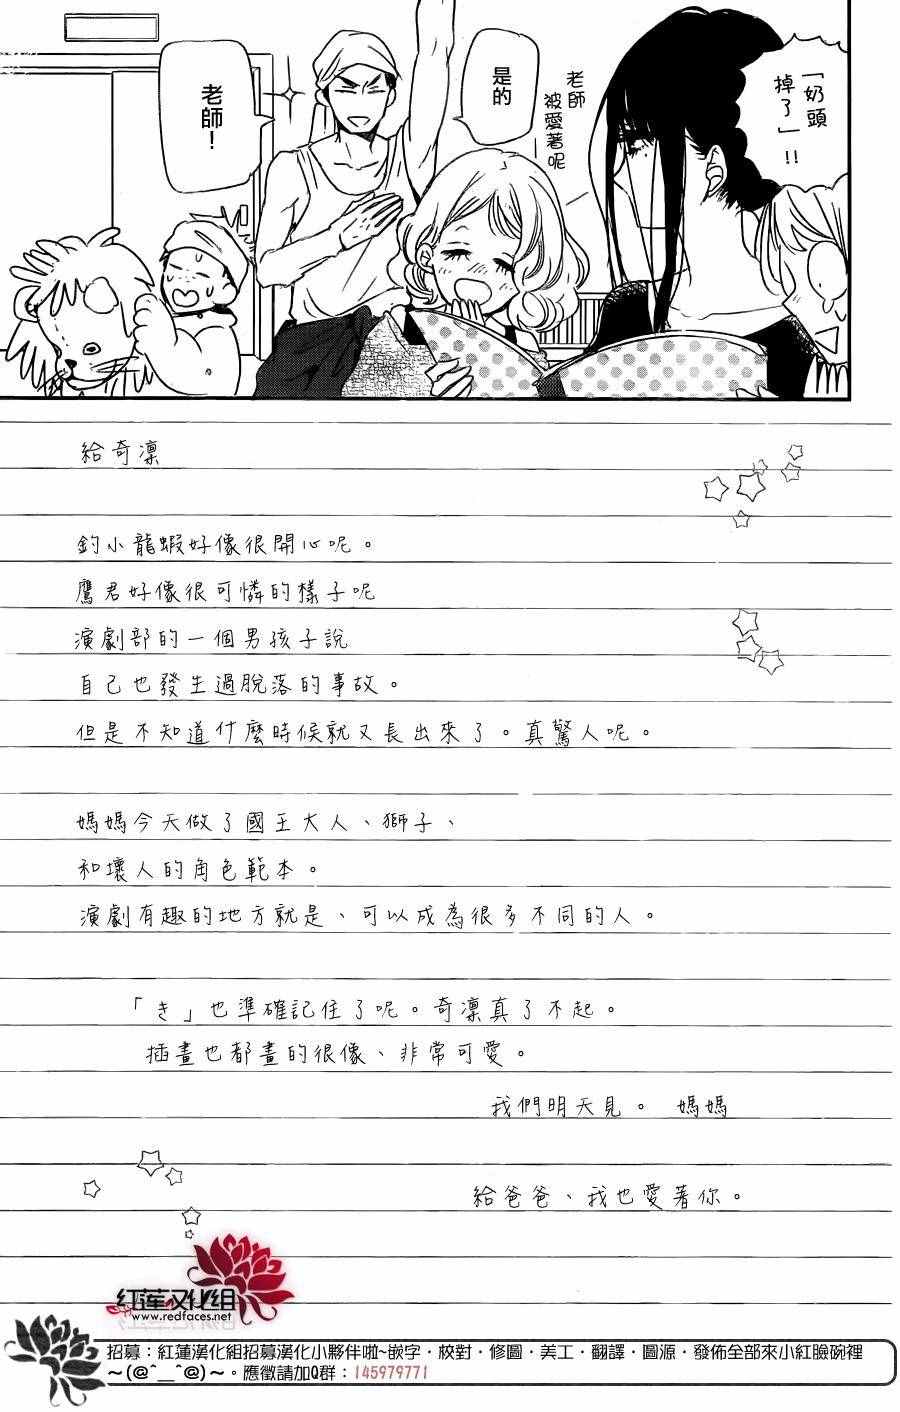 「奶頭
掉了」!!
老師
被愛著呢
是的
老師！
給奇凜
釣小龍蝦好像很開心呢。
鷹君好像很可憐的樣子呢
演劇部的一個男孩子說
自己也發生過脫落的事故。
但是不知道什麼時候就又長出來了。真驚人呢。
媽媽今天做了國王大人、獅子、
和壞人的角色範本。
演劇有趣的地方就是、可以成為很多不同的人。
「き」也準確記住了呢。奇凜真了不起。
插畫也都畫的很像、非常可愛。
我們明天見。 媽媽
給爸爸、我也愛著你。
紅蓮汉化組
www.redfaces.net
招募：紅蓮漢化組招募漢化小夥伴啦~嵌字・校對・修圖・美工・翻譯・圖源・發佈全部來小紅臉碗裡
～(@^__^@)～。應徵請加Q群：145979771